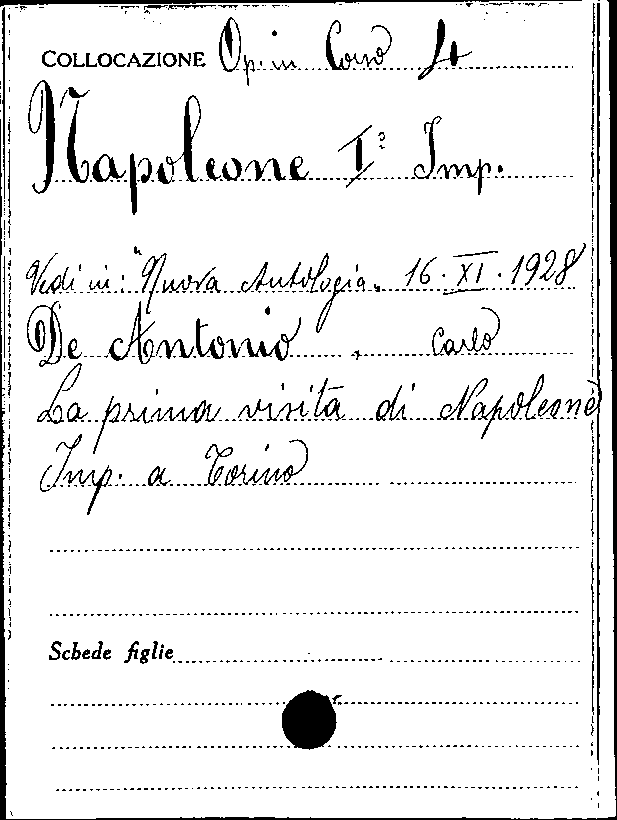 COLLOCAZIONE Op. in Corso 4
Napoleone Iº Imp.
Vedi in: "Nuova Antologia" 16. XI. 1928
De Antonio, Carlo
La prima visita di Napoleone
Imp. a Torino
Schede figlie